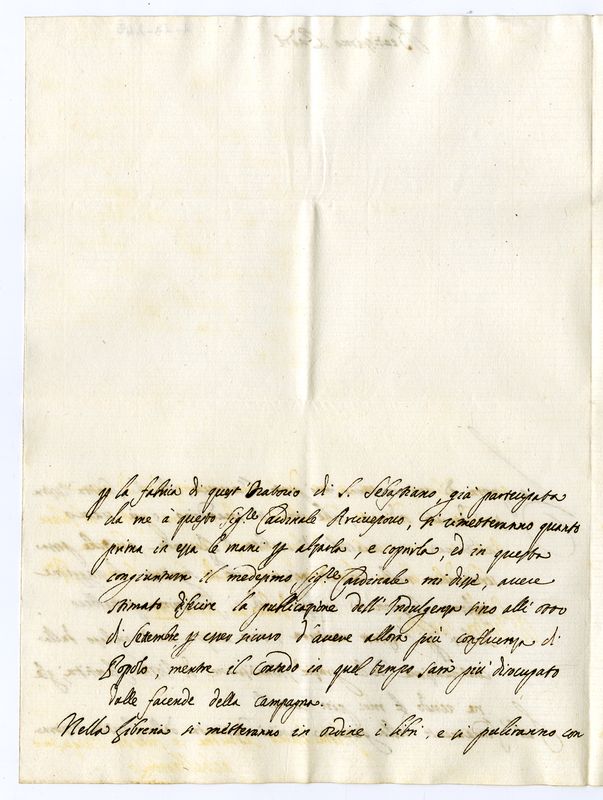 p la fabrica di quest'Oratorio di S. Sebastiano, già participata
da me à questo Sig.re Cardinale Arcivescovo, si rimetteranno quanto
prima in essa le mani p alzarla, e coprirla, ed in questa
congiuntura il medesimo Sig.re Cardinale mi disse, avere
stimato differire la publicazione dell'Indulgenza sino alli otto
di Settembre p esser sicuro d'avere allora più confluenza di
Popolo, mentre il Contado in quel tempo sarà più disocupato
dalle facende della campagna.
Nella Libreria si metteranno in ordine i libri, e si puliranno con